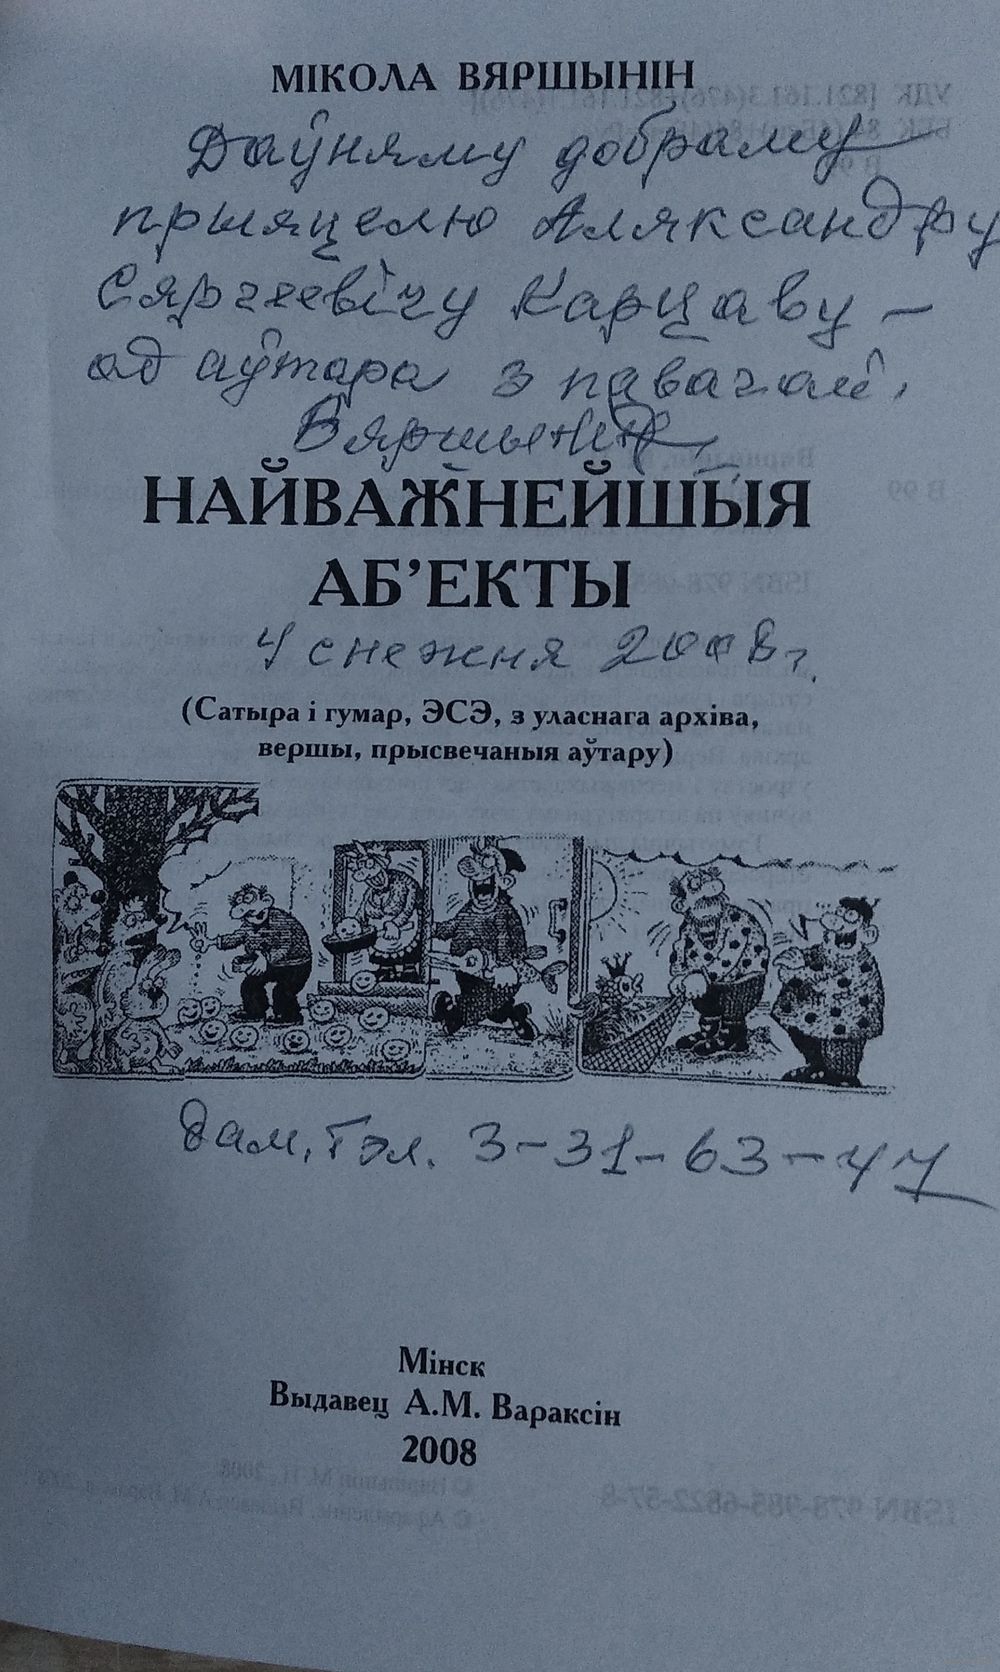 МІКОЛА ВЯРШЫНІН
Даўняму добраму
прыяцелю Аляксандру
Сяргеевічу Карцаву –
ад аўтара з павагай.
Вяршынін
НАЙВАЖНЕЙШЫЯ
АБ’ЕКТЫ
4 снежня 2008 г.
(Сатыра і гумар, ЭСЭ, з уласнага архіва,
вершы, прысвечаныя аўтару)
Дам. тэл. 3-31-63-47
Мінск
Выдавец А.М. Вараксін
2008
ISBN 978-985-6822-57-8